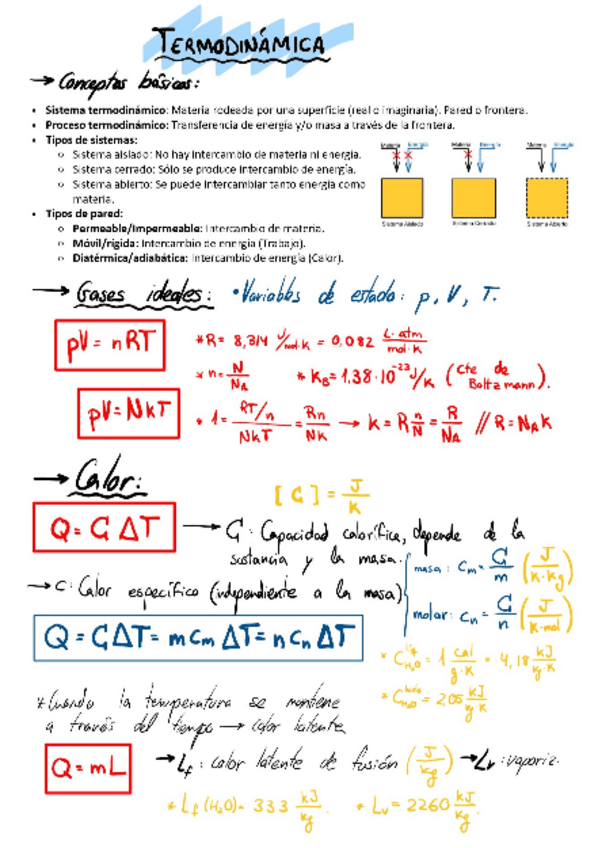 TERMODINÁMICA
→ Conceptos básicos:
• Sistema termodinámico: Materia rodeada por una superficie (real o imaginaria). Pared o frontera.
• Proceso termodinámico: Transferencia de energía y/o masa a través de la frontera.
• Tipos de sistemas:
○ Sistema aislado: No hay intercambio de materia ni energía.
○ Sistema cerrado: Sólo se produce intercambio de energía.
○ Sistema abierto: Se puede intercambiar tanto energía como
materia.
Materia Energía Materia Energía Materia Energía
Sistema Aislado Sistema Cerrado Sistema Abierto
• Tipos de pared:
○ Permeable/Impermeable: Intercambio de materia.
○ Móvil/rígida: Intercambio de energía (Trabajo).
○ Diatérmica/adiabática: Intercambio de energía (Calor).
→ Gases ideales: • Variables de estado: p, V, T.
pV = nRT
* R = 8,314 J/mol·K = 0,082 L·atm/mol·K
* n = N/NA * KB = 1,38·10^-23 J/K (Cte de Boltzmann).
pV = NkT
* 1 = RT/n / NkT = Rn/NK → k = R n/N = R/NA // R = NA K
→ Calor:
[C] = J/K
Q = C ΔT → C: Capacidad calorífica, depende de la
sustancia y la masa.
→ c: Calor específico (independiente a la masa)
masa: cm = C/m (J/K·kg)
molar: cn = C/n (J/K·mol)
Q = CΔT = m cm ΔT = n cn ΔT
* C H2O = 1 cal/g·K = 4,18 kJ/kg·K
* C H2O = 2,05 kJ/kg·K
* Cuando la temperatura se mantiene
a través del tiempo → calor latente
Q = mL
→ Lf: calor latente de fusión (J/kg) → Lv: vaporiz.
* Lf (H2O) = 333 kJ/kg. * Lv = 2260 kJ/kg.